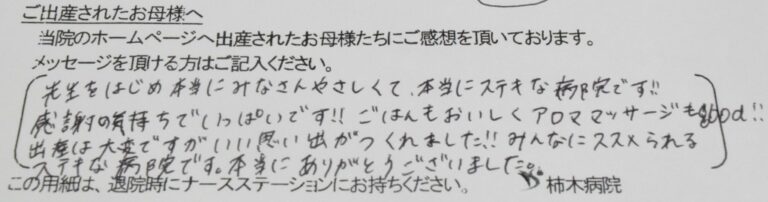 ご出産されたお母様へ
当院のホームページへ出産されたお母様たちにご感想を頂いております。
メッセージを頂ける方はご記入ください。
先生をはじめ本当にみなさんやさしくて、本当にステキな病院です!!
感謝の気持ちでいっぱいです!! ごはんもおいしくアロママッサージもgood!!
出産は大変ですがいい思い出がつくれました!! みんなにススメられる
ステキな病院です。本当にありがとうございました。
この用細は、退院時にナースステーションにお持ちください。 柿木病院